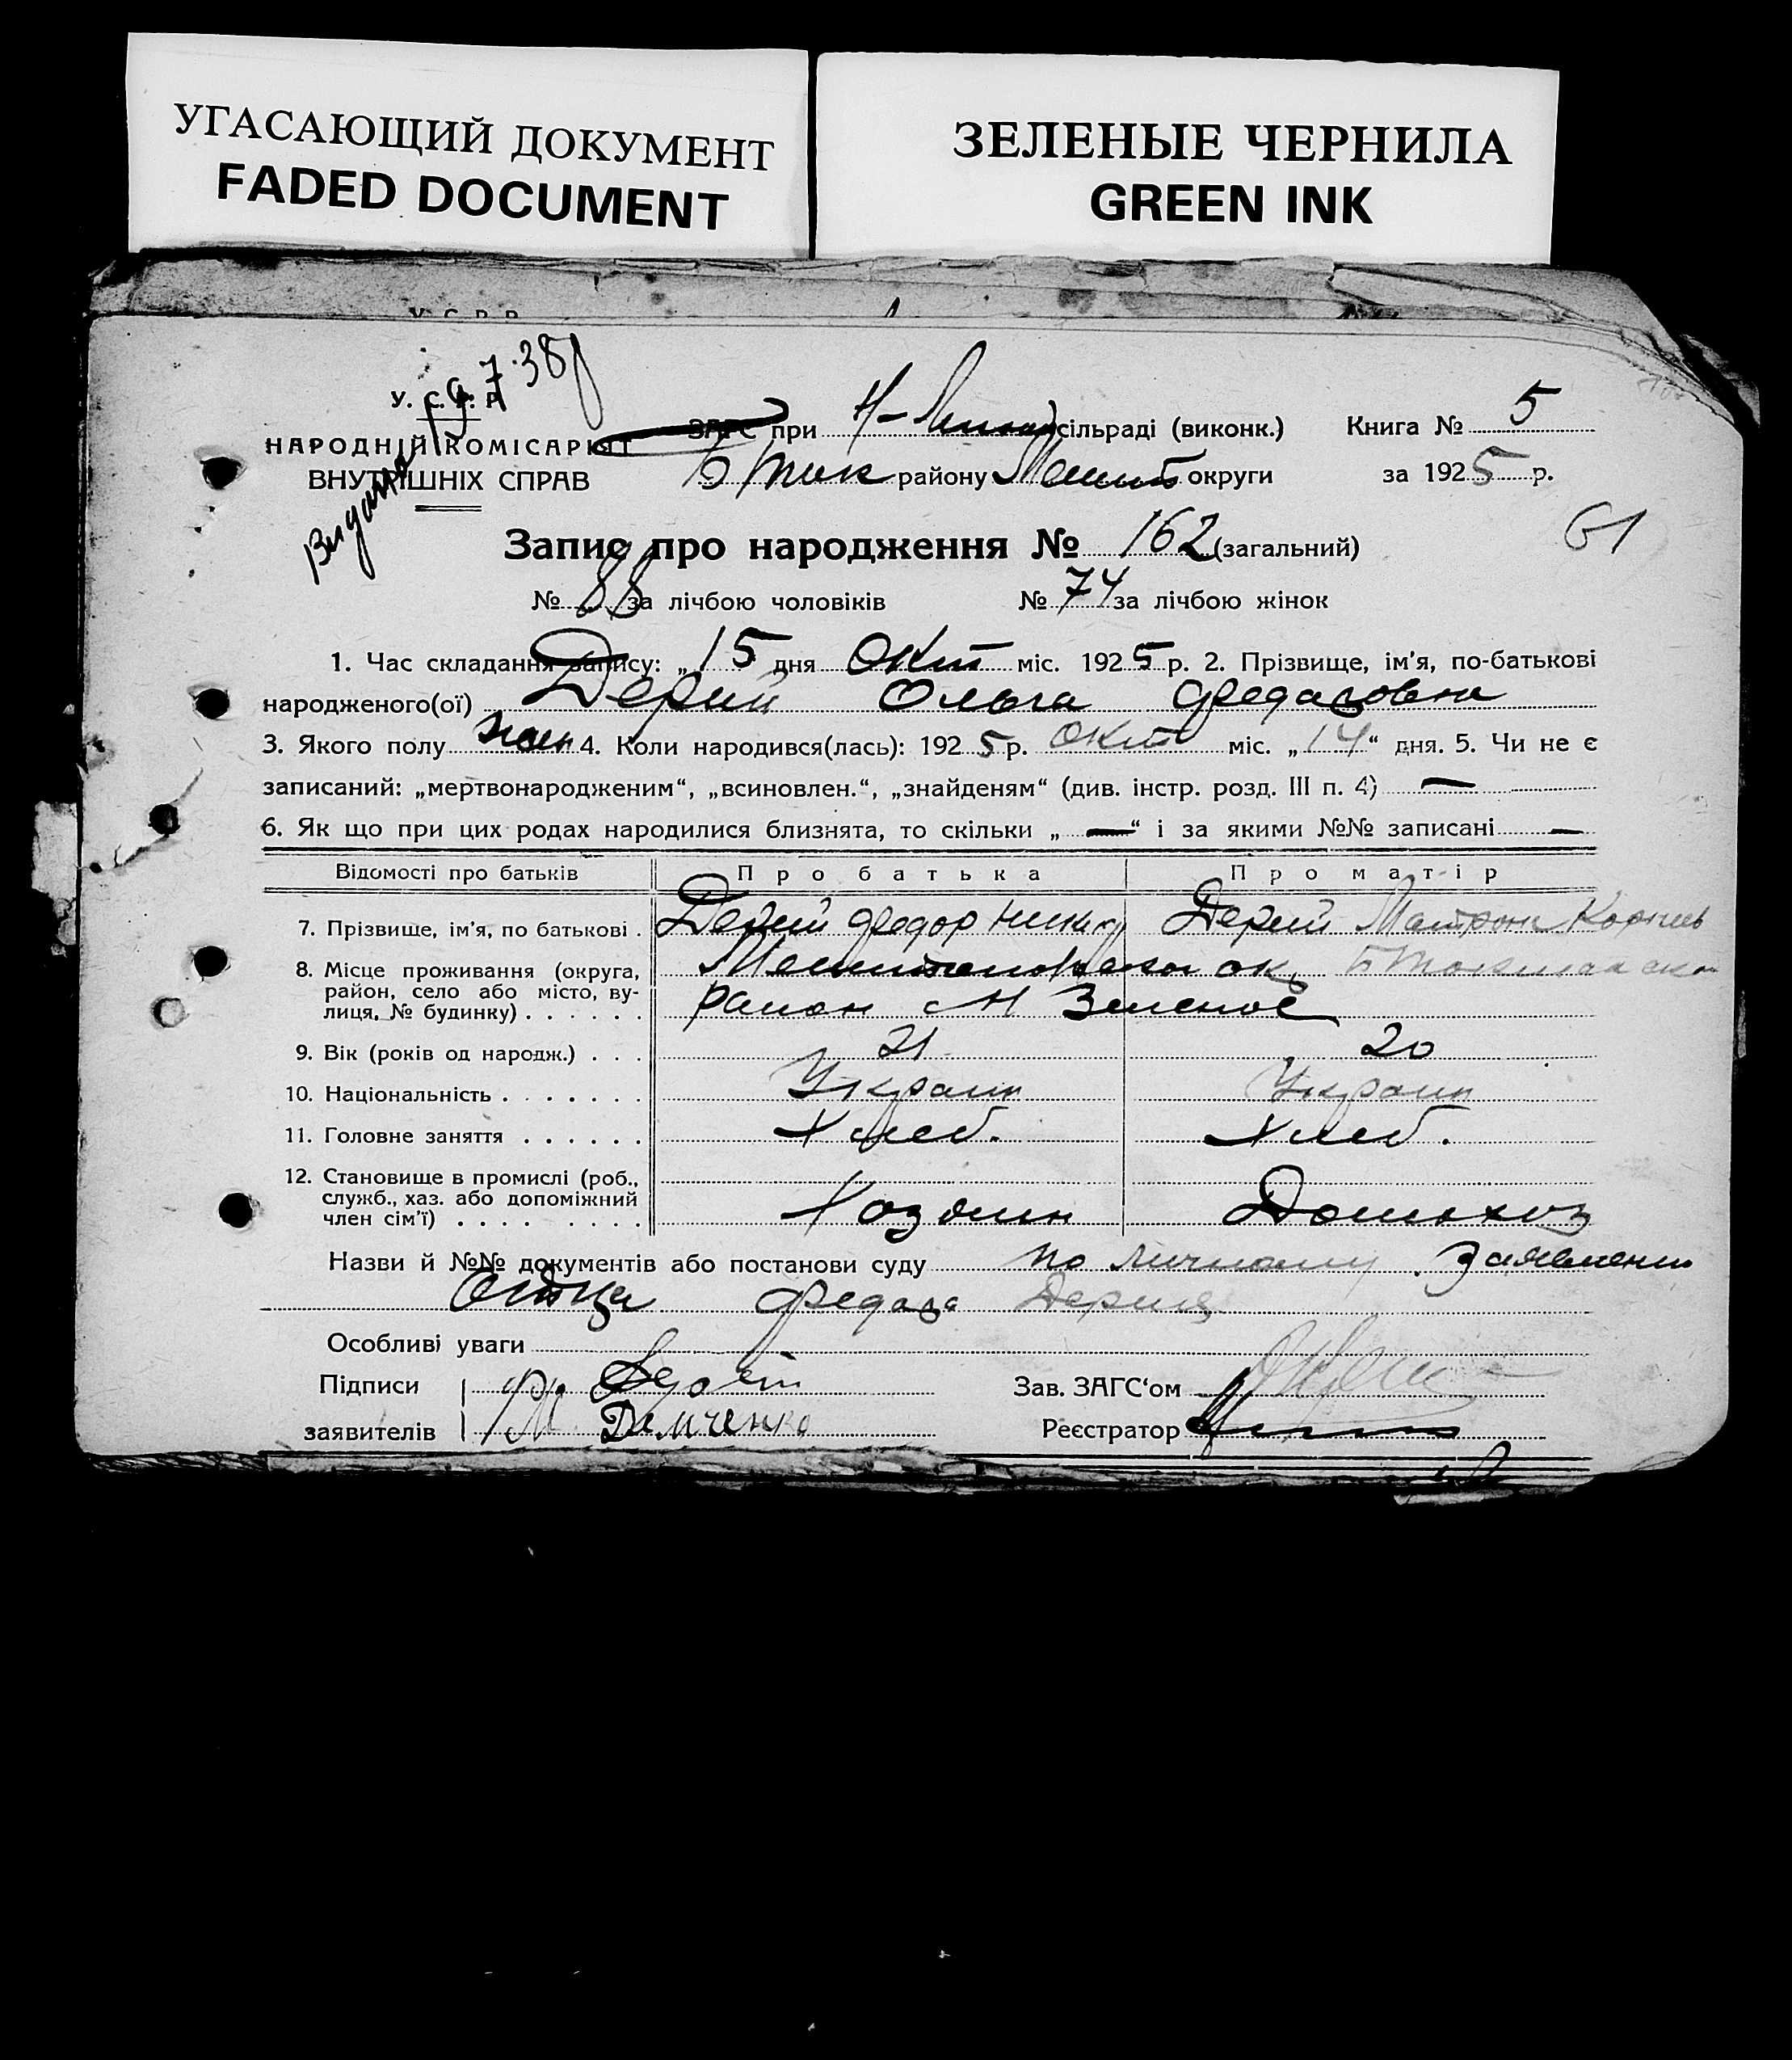 УГАСАЮЩИЙ ДОКУМЕНТ
FADED DOCUMENT
ЗЕЛЕНЫЕ ЧЕРНИЛА
GREEN INK
У. С. Р. Р.
НАРОДНІЙ КОМІСАРІЯТ
ВНУТРІШНІХ СПРАВ
ЗАГС при сільраді (виконк.) Книга № 5
району округи за 1925 р.
Запис про народження № 162 (загальний) 61
№ 88 за лічбою чоловіків № 74 за лічбою жінок
1. Час складання запису: „ 15 дня Окт міс. 1925 р. 2. Прізвище, ім'я, по-батькові
народженого(ої) Дерий Ольга Федаровна
3. Якого полу жен 4. Коли народився(лась): 1925 р. окт міс. „14“ дня. 5. Чи не є
записаний: „мертвонародженим“, „всиновлен.“, „знайденям“ (див. інстр. розд. III п. 4) —
6. Як що при цих родах народилися близнята, то скільки „ — “ і за якими №№ записані —
Відомості про батьків Про батька Про матір
7. Прізвище, ім'я, по батькові . Дерий Федор Никид Дерий Матрона Корнеев
8. Місце проживання (округа, ок, Б Токмакско
район, село або місто, ву- район с Н Зеленое
лиця, № будинку) . . . . . .
9. Вік (років од народж.) . . . 21 20
10. Національність . . . . . . . Украин Украин
11. Головне заняття . . . . . . Хлеб. Хлеб.
12. Становище в промислі (роб.,
служб., хаз. або допоміжний Хозяин Домохоз
член сім'ї) . . . . . . . .
Назви й №№ документів або постанови суду по личному заявлению
отца Федора Дерия
Особливі уваги
Підписи Зав. ЗАГС'ом
заявителів М. Демченко Реєстратор